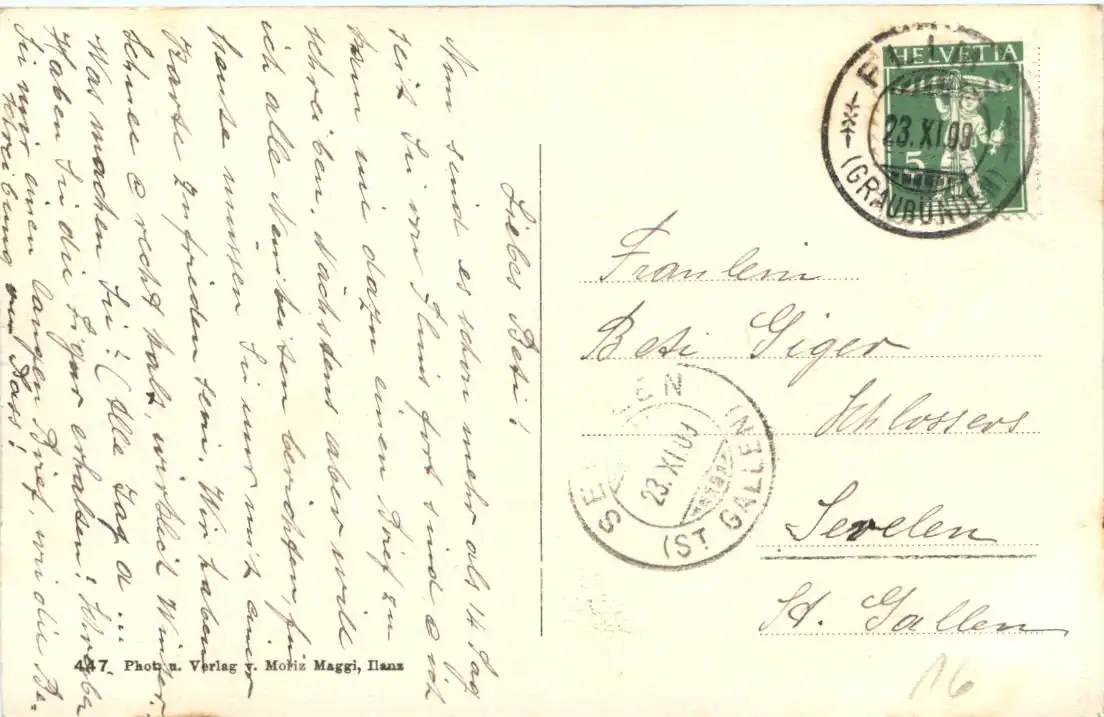 Liebes Beti!
Nun sind es schon mehr als 14 Tag
seit Sie von Ilanz fort sind & noch
kam nie dazu einen Brief zu
schreiben. Nächstens aber will
ich alle Neuheiten berichten, für
heute müssen Sie nur mit einer
Karte zufrieden sein. Wir haben
Schnee & recht kalt, wirklich Winter.
Was machen Sie? (Alle Tag a ...
Haben Sie die Figur erhalten? Schreiben
Sie mir einen langen Brief, wie die Be-
treibung
447 Phot. u. Verlag v. Moriz Maggi, Ilanz
HELVETIA
5
23.XI.09
(GRAUBÜNDEN)
Fräulein
Beti Giger
Schlossers
Sevelen
St. Gallen
SE EN
23.XI.09
(ST GALLEN)
16